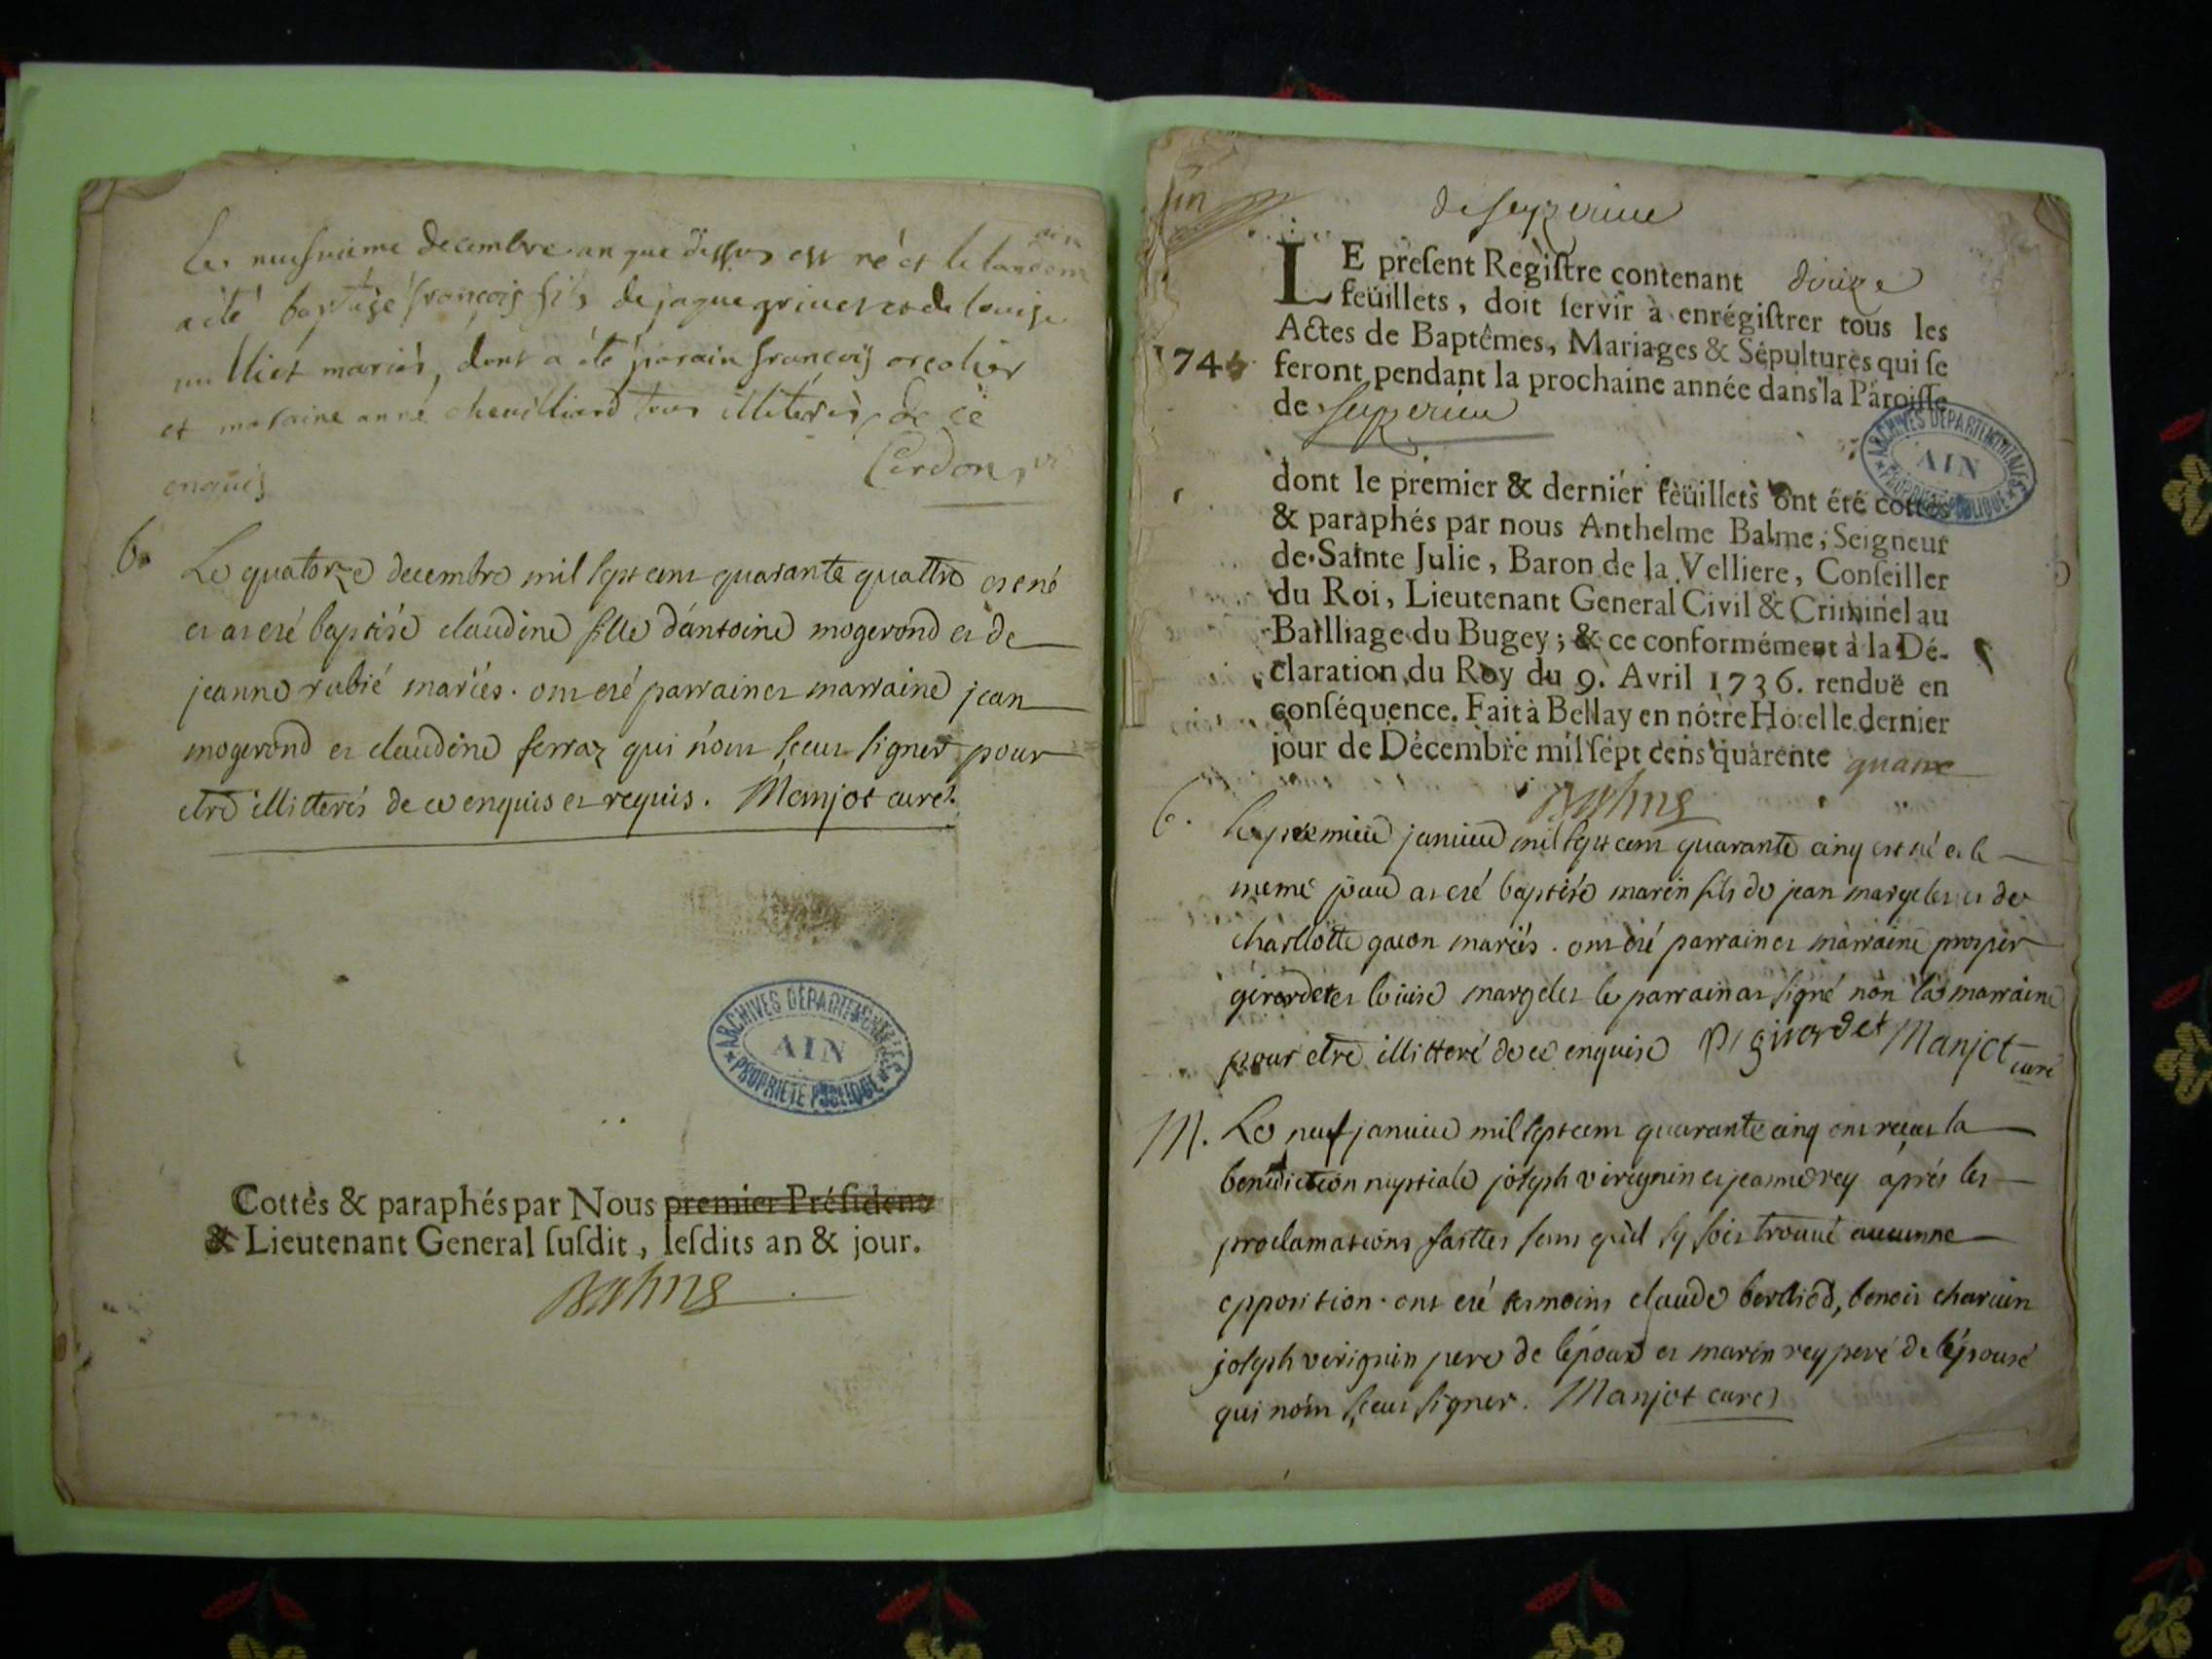 Le neufvieme decembre an que dessus est né et le landem
a été baptisé françois fils de jaque grinet et de louise
mulliet mariés, dont a été parain françois
et maraine anne chevilliard tous illiterés, de ce
enquis Cerdon, vi
b. Le quatorze decembre mil sept cent quarante quattre est né
et at eté baptisé claudine fille d'antoine mogerond et de
jeanne rubié mariés. ont eté parrain et marraine jean
mogerond et claudine ferraz qui n'ont sçeut signer pour
etre illitterés de ce enquis et requis. Manjot curé.
ARCHIVES DÉPARTEMENTALES
AIN
PROPRIÉTÉ PUBLIQUE
Cottés & paraphés par Nous premier Présidens
& Lieutenant General susdit, lesdits an & jour.
Balme
de seyzerieu
LE present Registre contenant douze
feüillets, doit servir à enrégistrer tous les
Actes de Baptêmes, Mariages & Sépultures qui se
1745 feront pendant la prochaine année dans la Paroisse
de seyzerieu
ARCHIVES DÉPARTEMENTALES
AIN
PROPRIÉTÉ PUBLIQUE
dont le premier & dernier feüillets ont été cottés
& paraphés par nous Anthelme Balme, Seigneur
de Sainte Julie, Baron de la Velliere, Conseiller
du Roi, Lieutenant General Civil & Criminel au
Bailliage du Bugey; & ce conformément à la Dé-
claration du Roy du 9. Avril 1736. renduë en
conséquence. Fait à Bellay en nôtre Hotel le dernier
jour de Décembre mil sept cens quarente quatre
Balme
b. le premier janvier mil sept cent quarante cinq est né et le
meme jour at eté baptisé marin fils de jean margelet et de
charllotte gacon mariés. ont eté parrain et marraine prosper
girardet et louise margelet le parrain at signé non la marraine
pour etre illitteré de ce enquise P girardet Manjot curé
M. Le neuf janvier mil sept cent quarante cinq ont reçeut la
benediction nuptiale joseph verignin et jeanne rey aprés les
proclamations faittes sans qu'il sy soit trouvé aucunne
opposition. ont eté temoins claude berlliod, benoit charvin
joseph verignin pere de l'époux et marin rey pere de l'épouse
qui n'ont sçeut signer. Manjot curé